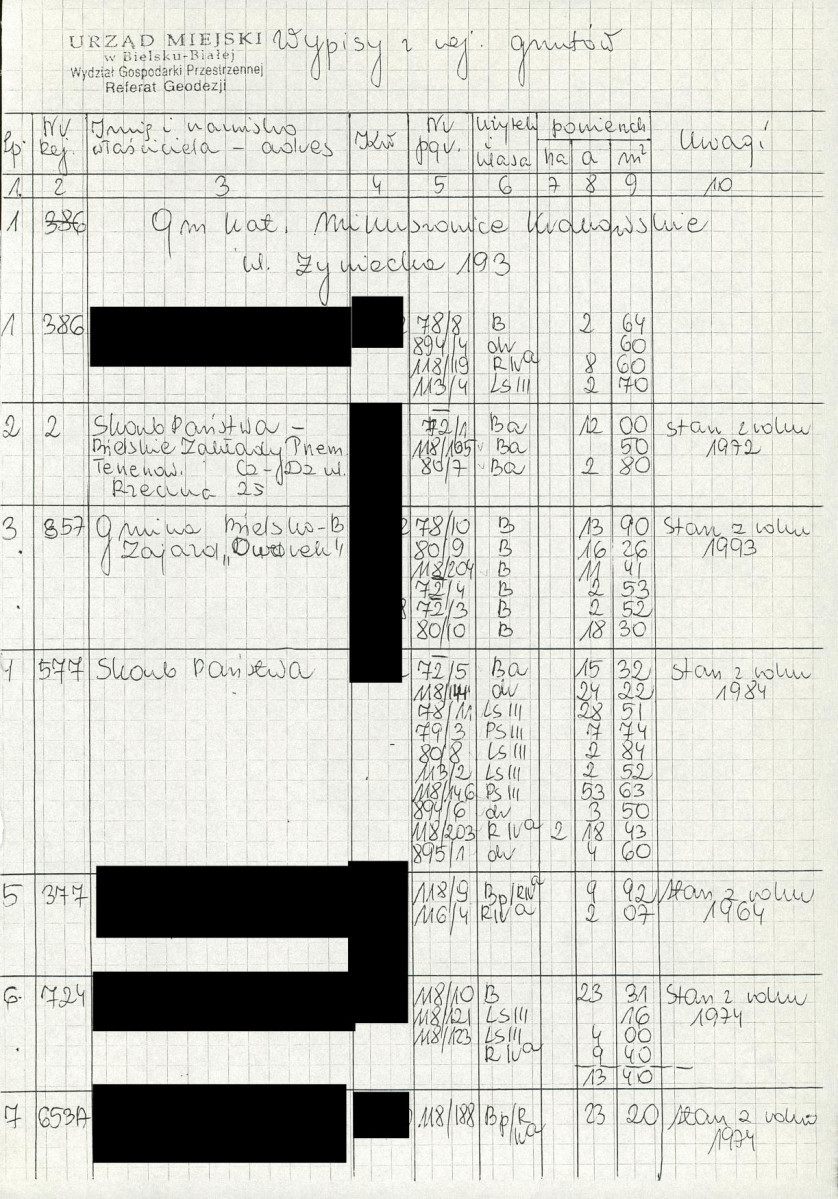 URZĄD MIEJSKI
w Bielsku-Białej
Wydział Gospodarki Przestrzennej
Referat Geodezji
Wypisy z rej. gruntów
Lp. Nr rej. Imię i nazwisko właściciela – adres KW Nr pgr. Użytek i klasa powierzch ha a m² Uwagi
1. 2 3 4 5 6 7 8 9 10
1 386 gm kat. Mikuszowice Krakowskie
ul. Żywiecka 193
1 386 78/8 B 2 64
894/4 dr 60
118/19 R IVa 8 60
113/4 Ls III 2 70
2 2 Skarb Państwa – 72/1 Ba 12 00 Stan z roku
Bielskie Zakłady Przem. 118/165 Ba 50 1972
Terenow. Cz-Dz ul. 80/7 Ba 2 80
Rzeczna 25
3 857 Gmina Bielsko-B 78/10 B 13 90 Stan z roku
Zajazd „Dworek" 80/9 B 16 26 1993
118/204 B 11 41
72/4 B 2 53
72/3 B 2 52
80/10 B 18 30
4 577 Skarb Państwa 72/5 Ba 15 32 Stan z roku
118/144 dr 24 22 1984
78/11 Ls III 28 51
79/3 Ps III 7 74
80/8 Ls III 2 84
113/2 Ls III 2 52
118/146 Ps III 53 63
894/6 dr 3 50
118/203 R IVa 2 18 43
895/1 dr 4 60
5 377 118/9 Bp/RIVa 9 92 Stan z roku
116/4 RIVa 2 07 1964
6. 724 118/10 B 23 31 Stan z roku
118/121 Ls III 16 1974
118/123 Ls III 4 00
R IVa 9 40
13 40
7 653A 118/188 Bp/R 23 20 Stan z roku
IVa 1974